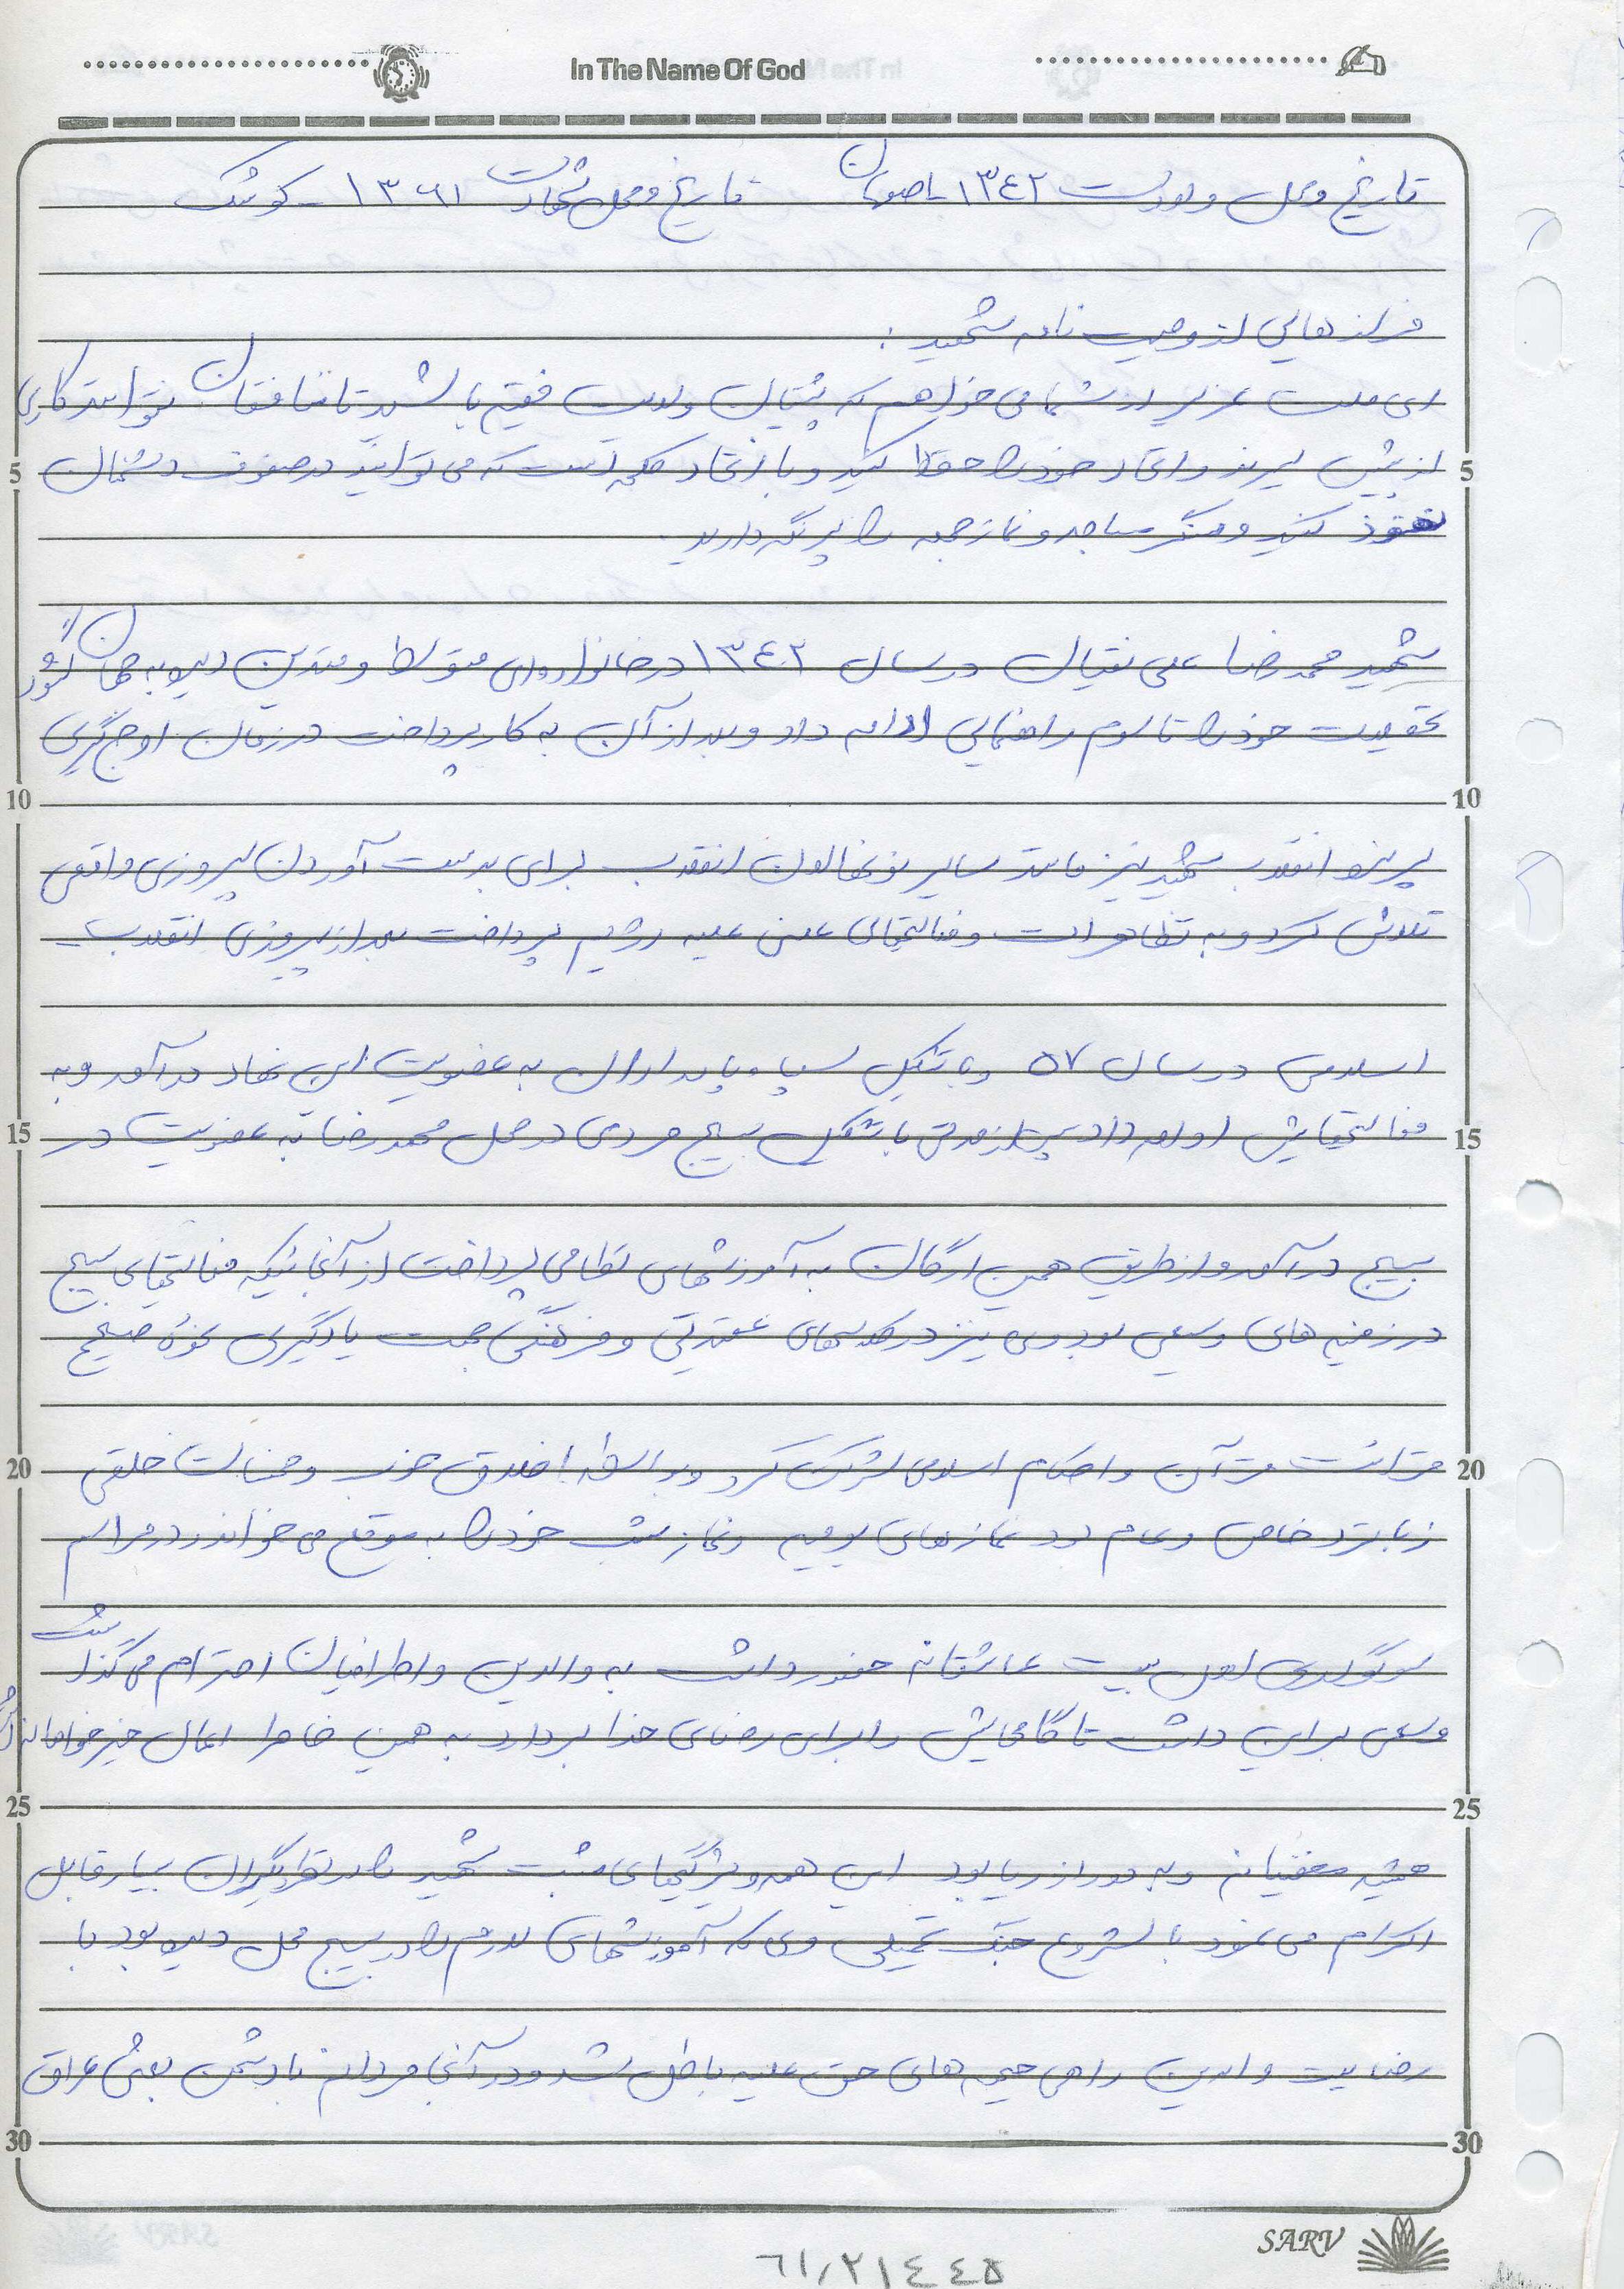 In The Name Of God
تاریخ و محل ولادت ۱۳۴۲ - اصفهان تاریخ و محل شهادت ۱۳۶۱ - کوشک
فرازهایی از وصیت نامه شهید :
ای ملت عزیز از شما می خواهم که پشتیبان ولایت فقیه باشید تا منافقان نتوانند کاری
5
از پیش ببرند و اتحاد خود را حفظ کنید و با اتحاد کلمه است که می توانید در صفوف دشمنان
نفوذ کنید و سنگر مساجد و نماز جمعه را پر نگه دارید .
شهید محمدرضا علی نقیان در سال ۱۳۴۲ در خانواده ای متوسط و متدین دیده به جهان گشود و
تحصیلات خود را تا سوم راهنمایی ادامه داد و بعد از آن به کار پرداخت در زمان اوج گیری
10
انقلاب شهید نیز مانند سایر نونهالان انقلاب برای بدست آوردن پیروزی واقعی
تلاش کرد و به تظاهرات و فعالیتهای علنی علیه رژیم پرداخت بعد از پیروزی انقلاب -
اسلامی در سال ۵۷ و با تشکیل سپاه پاسداران به عضویت این نهاد در آمد و به
15
فعالیتهایش ادامه داد پس از مدتی با تشکیل بسیج مردمی در محل محمدرضا به عضویت در
بسیج در آمد و از طریق همین ارگان به آموزشهای نظامی پرداخت از آنجائیکه فعالیتهای بسیج
در زمینه های وسیعی بود وی نیز در کلاسهای عقیدتی و فرهنگی جهت یادگیری نحوه صحیح
20
قرائت قرآن و احکام اسلامی شرکت کرد و بواسطه اخلاق خوب و خلقی
زبانزد خاص و عام بود نمازهای یومیه و نماز شب خود را به موقع می خواند و در مراسم
سوگواری اهل بیت عاشقانه حضور داشت به والدین و اطرافیان احترام می گذاشت
وسعی بر این داشت تا گامهایش را برای رضای خدا بردارد به همین خاطر اعمال خیرخواهانه اش
25
همیشه مخفیانه و به دور از ریا بود این همه ویژگیهای مثبت شهید را در نظر دیگران بسیار قابل
احترام می نمود با شروع جنگ تحمیلی وی که آموزشهای لازم را در بسیج محل دیده بود با
رضایت والدین راهی جبهه های حق علیه باطل شد و در آنجا مردانه با دشمن بعثی عراق
30
SARV
۶۱/۲۱۴۴۵